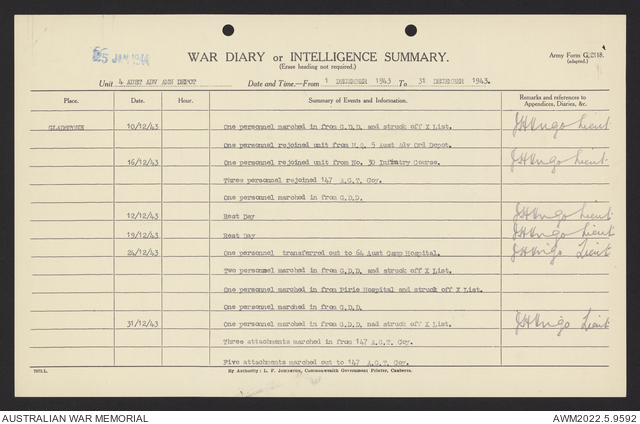 25 JAN 1944
WAR DIARY or INTELLIGENCE SUMMARY.
(Erase heading not required.)
Army Form C.2118.
(adapted.)
Unit 4 AUST ADV AMN DEPOT Date and Time.—From 1 DECEMBER 1943 To 31 DECEMBER 1943.
Place. Date. Hour. Summary of Events and Information. Remarks and references to Appendices, Diaries, &c.
GLADSTONE 10/12/43 One personnel marched in from G.D.D. and struck off X List. Lieut
One personnel rejoined unit from H.Q. 5 Aust Adv Ord Depot.
16/12/43 One personnel rejoined unit from No. 30 Infantry Course. Lieut
Three personnel rejoined 147 A.G.T. Coy.
One personnel marched in from G.D.D.
12/12/43 Rest Day Lieut
19/12/43 Rest Day Lieut
24/12/43 One personnel transferred out to 64 Aust Camp Hospital. Lieut
Two personnel marched in from G.D.D. and struck off X List.
One personnel marched in from Pirie Hospital and struck off X List.
One personnel marched in from G.D.D.
31/12/43 One personnel marched in from G.D.D. nad struck off X List. Lieut
Three attachments marched in from 147 A.G.T. Coy.
Five attachments marched out to 147 A.G.T. Coy.
By Authority: L. F. Johnston, Commonwealth Government Printer, Canberra.
AUSTRALIAN WAR MEMORIAL
AWM2022.5.9592